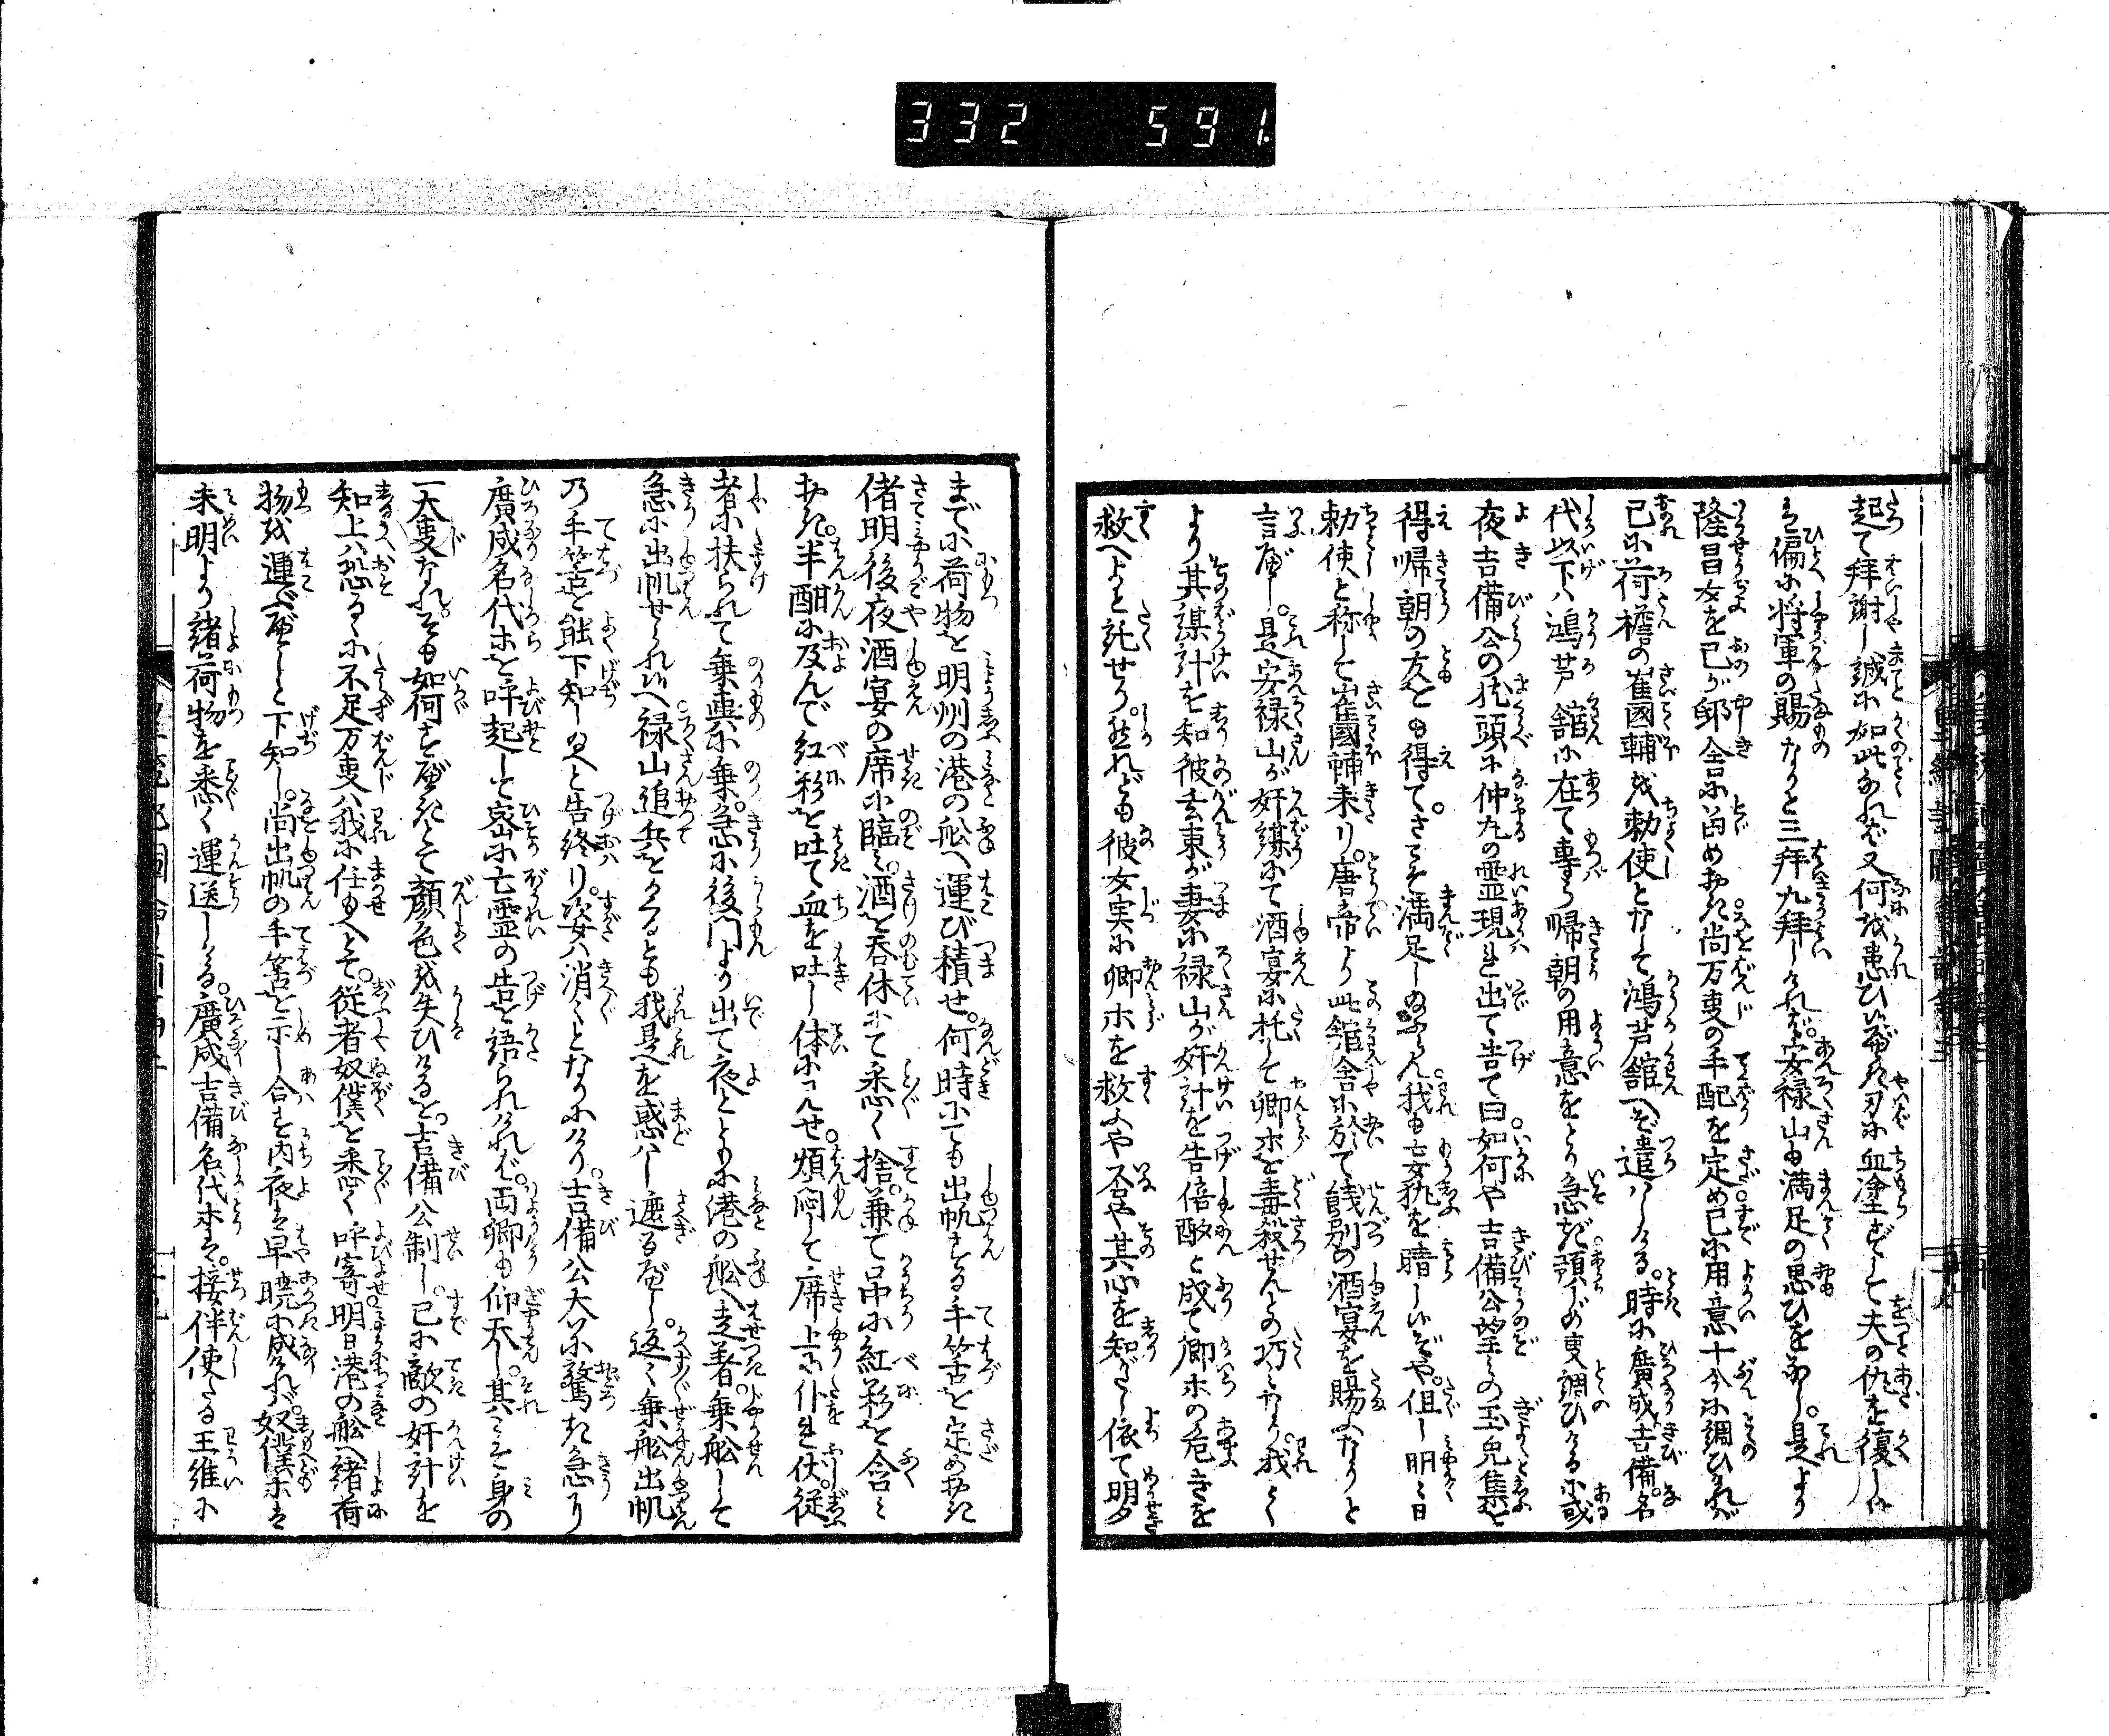 332 591
起て拝謝し誠に如此あれば又何を患ひいべき刃に血塗ずして夫の仇を復しい
は偏に将軍の賜なりと三拝九拝しければ。安禄山も満足の思ひをなし。是より
隆昌女を己が邸舎に留めおき尚万事の手配を定め己に用意十分に調ひければ
已に荷擔の崔國輔を勅使となして鴻芦舘へぞ遣はしたる。時に廣成吉備名
代以下ハ鴻芦舘に在て専ら帰朝の用意をとり急ぎ預め事調ひけるに或
夜吉備公の枕頭に仲丸の霊現れ出て告て曰如何や吉備公望みの玉兎集を
得帰朝の友をも得て。さぞ満足しめさん我も亡妄執を晴しいぞや。但し明日
勅使と称して崔國輔来り。唐帝より此舘舎に於て餞別の酒宴を賜ふなりと
言べし。是安禄山が奸謀にて酒宴に托して卿ホを毒殺せんの巧みなり。我く
より其謀計を知彼玄東が妻に禄山が奸計を告倍酸と成て卿ホの危きを
救へよと託せり。然れども彼女実に卿ホを救ふや否や其心を知がたし依て明夕
までに荷物を明州の港の舩へ運び積せ。何時にても出帆する手筈を定めおき
偖明後夜酒宴の席に臨み。酒を呑休にて悉く捨。兼て口中に紅彩を含み
おき。半酣に及んで紅彩を吐て血を吐し体に見せ。煩悶して席上に仆れ伏。従
者に扶られて乗輿に乗。急に後門より出て夜とともに港の舩へ走着。乗舩して
急に出帆せられいへ禄山追兵をかくるとも我是を惑はし遮るべし。返く乗舩出帆
乃手筈を能下知し玉へと告終り。姿ハ消々となりにけり。吉備公大に驚き急に
廣成名代ホを呼起して密に亡霊の告を語られければ。両卿も仰天し。其こそ身の
一大事なれ。そも如何すべきとて顔色を失ひけると。吉備公制し。已に敵の奸計を
知上ハ恐るゝに不足万事ハ我に任せ玉へとて。従者奴僕を悉く呼寄明日港の舩へ諸荷
物を運べべしと下知し。尚出帆の手筈を示し合す内夜は早暁に成ければ。奴僕ホは
未明より諸荷物を悉く運送しける。廣成吉備名代ホは。接伴使たる王維に